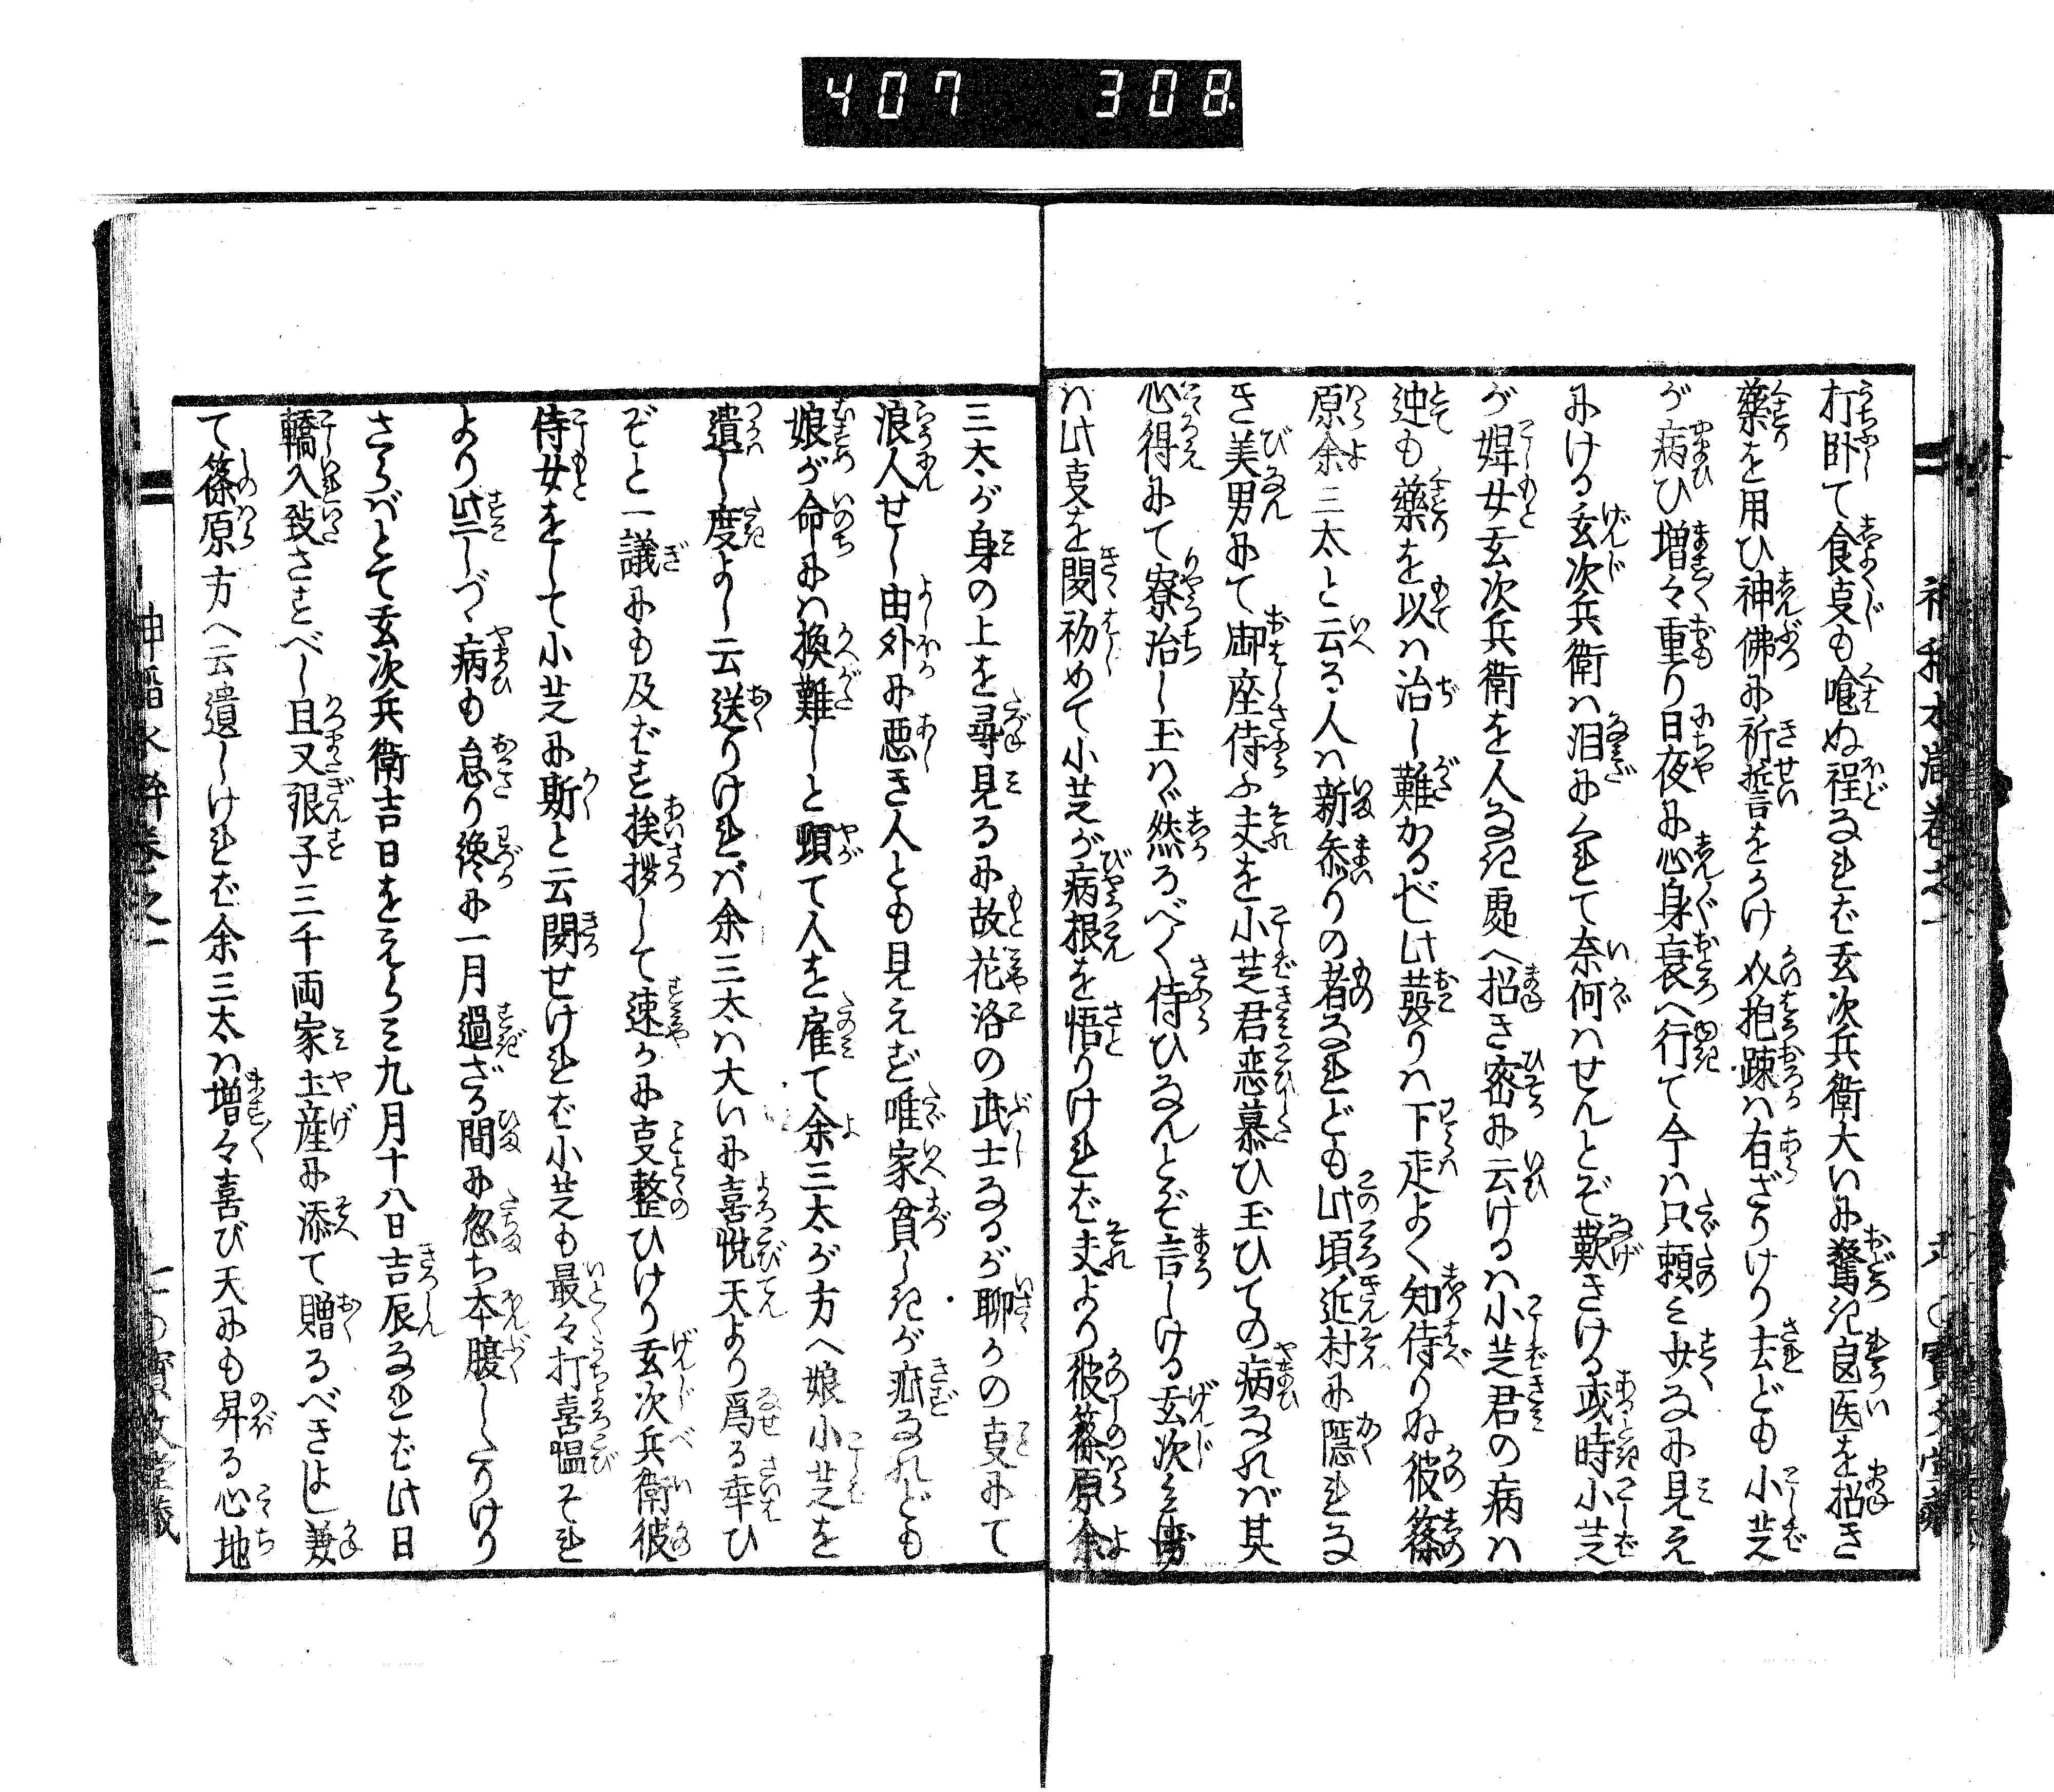 407 308
打卧て食叓も喰ぬ程なれば玄次兵衛大いに驚き良医を招き
藥を用ひ神佛に祈誓をかけ介抱踈は有ざりけり去ども小芝
が病ひ増々重り日夜に心身衰へ行て今は只頼み少なに見え
にける玄次兵衛は泪にくれて奈何はせんとぞ歎きける或時小芝
が婢女玄次兵衛を人なき處へ招き密に云けるは小芝君の病は
迚も藥を以は治し難かるべし此發りは下走よく知侍りぬ彼篠
原余三太と云る人は新参りの者なれども此頃近村に隠れな
き美男にて御座侍ふ夫を小芝君恋慕ひ玉ひての病なれば其
心得にて寮治し玉はゞ然るべく侍ひなんとぞ言しける玄次
は此叓を聞初めて小芝が病根を悟りければ夫より彼篠原余
三太が身の上を尋見るに故花洛の武士なるが聊かの叓にて
浪人せし由外に悪き人とも見えず唯家貧しきが疵なれども
娘が命には換難しと頓て人を雇て余三太が方へ娘小芝を
遺し度よし云送りければ余三太は大いに喜悦天より爲る幸ひ
ぞと一議にも及ばず挨拶して速かに叓整ひけり玄次兵衛彼
侍女をして小芝に斯と云聞せければ小芝も最々打喜慍それ
より些しづゝ病も怠り纔に一月過ざる間に忽ち本腹したりけり
さらばとて玄次兵衛吉日をえらみ九月十八日吉辰なれば此日
轎入致さすべし且又銀子三千両家土産に添て贈るべきよし兼
て篠原方へ云遺しければ余三太は増々喜び天にも昇る心地